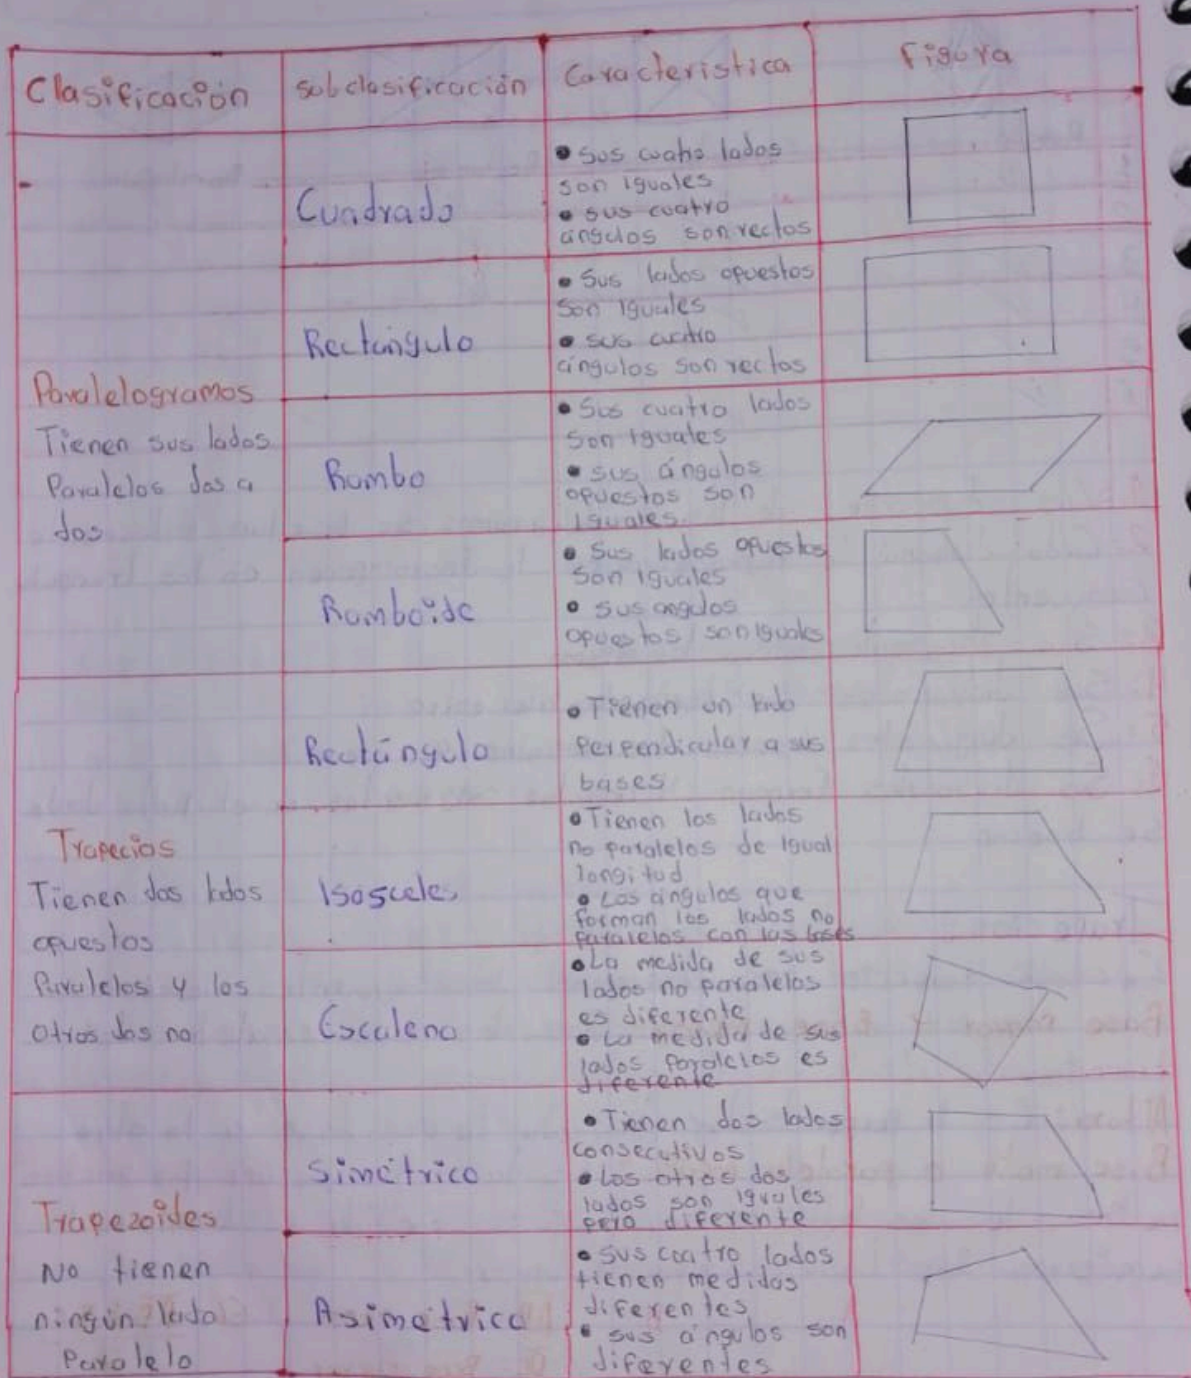 Clasificación
Subclasificación
Caracteristica
Figura
Paralelogramos
Tienen sus lados
Paralelos dos a
dos
Cuadrado
• Sus cuatro lados
son iguales
• sus cuatro
ángulos son rectos
Rectángulo
• Sus lados opuestos
son iguales
• sus cuatro
ángulos son rectos
Rombo
• Sus cuatro lados
son iguales
• sus ángulos
opuestos son
iguales
Romboide
• Sus lados opuestos
son iguales
• sus angulos
opuestos son iguales
Trapecios
Tienen dos lados
opuestos
Paralelos y los
otros dos no
Rectángulo
• Tienen un lado
perpendicular a sus
bases
Isósceles
• Tienen los lados
no paralelos de igual
longitud
• Los ángulos que
forman los lados no
paralelos con las bases
Escaleno
• La medida de sus
lados no paralelos
es diferente
• La medida de sus
lados paralelos es
diferente
Trapezoides
No tienen
ningún lado
Paralelo
Simétrico
• Tienen dos lados
consecutivos
• Los otros dos
lados son iguales
pero diferente
Asimetrico
• sus cuatro lados
tienen medidas
diferentes
• sus ángulos son
diferentes